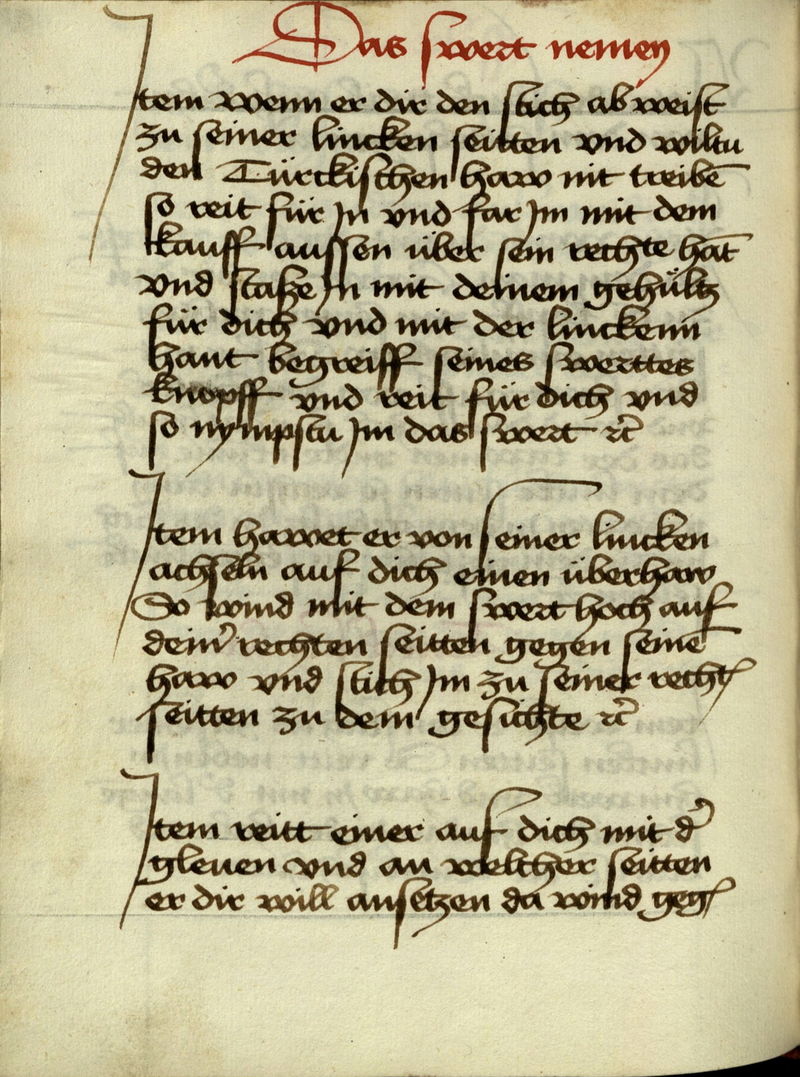 Das swert nemen
Item wenn er dir den stich ab weist
zu seiner lincken seitten vnd wiltu
den Türckischen haw nit treibē
so reit für Jn vnd far Jm mit dem
kauff aussen über sein rechte hāt
vnd stosse Jn mit deinem gehültz
für dich vnd mit der linckenn
hant begreiff seines swerttes
knopff vnd reit für dich vnd
so nympstu Jm das swert ꝛc̄
Item hawet er von seiner lincken
achseln auf dich einen überhaw
So wind mit dem swert hoch auf
dein̄ rechten seitten gegen seinē
haw vnd stich Jm zu seiner recht̄
seitten zu dem gesichte ꝛc̄
Item reitt einer auf dich mit d̄
gleuen vnd an welcher seitten
er dir will ansetzen da wind geḡ